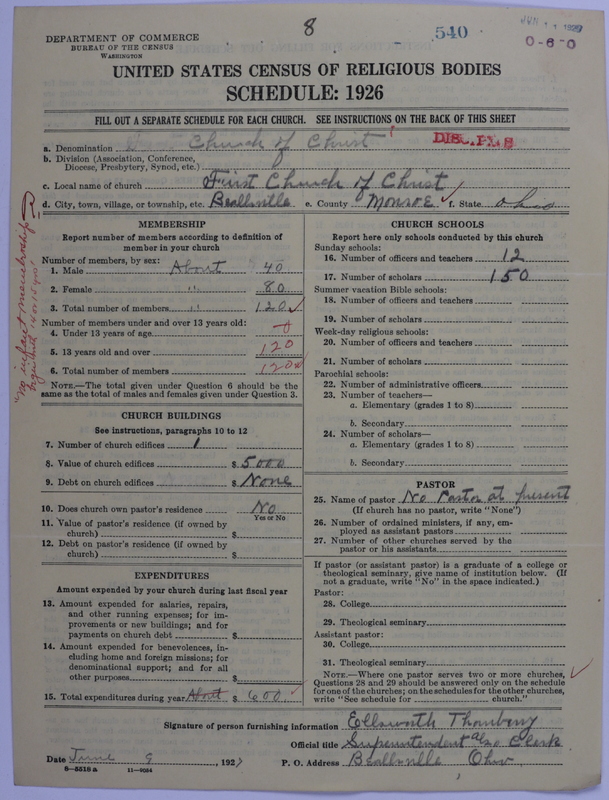 8
540
JUN 11 1927
0-6-0
DEPARTMENT OF COMMERCE
BUREAU OF THE CENSUS
WASHINGTON
UNITED STATES CENSUS OF RELIGIOUS BODIES
SCHEDULE: 1926
FILL OUT A SEPARATE SCHEDULE FOR EACH CHURCH. SEE INSTRUCTIONS ON THE BACK OF THIS SHEET
a. Denomination Church of Christ
b. Division (Association, Conference, Diocese, Presbytery, Synod, etc.)
c. Local name of church First Church of Christ
d. City, town, village, or township, etc. Beallsville e. County Monroe f. State Ohio
MEMBERSHIP
Report number of members according to definition of member in your church
Number of members, by sex:
1. Male About 40
2. Female " 80
3. Total number of members " 120
Number of members under and over 13 years old:
4. Under 13 years of age
5. 13 years old and over 120
6. Total number of members 120
NOTE.—The total given under Question 6 should be the same as the total of males and females given under Question 3.
"no infant membership
CHURCH BUILDINGS
See instructions, paragraphs 10 to 12
7. Number of church edifices 1
8. Value of church edifices $ 5000
9. Debt on church edifices $ None
10. Does church own pastor's residence No
Yes or No
11. Value of pastor's residence (if owned by church) $
12. Debt on pastor's residence (if owned by church) $
EXPENDITURES
Amount expended by your church during last fiscal year
13. Amount expended for salaries, repairs, and other running expenses; for improvements or new buildings; and for payments on church debt $
14. Amount expended for benevolences, including home and foreign missions; for denominational support; and for all other purposes $
15. Total expenditures during year About $ 600
CHURCH SCHOOLS
Report here only schools conducted by this church
Sunday schools:
16. Number of officers and teachers 12
17. Number of scholars 150
Summer vacation Bible schools:
18. Number of officers and teachers
19. Number of scholars
Week-day religious schools:
20. Number of officers and teachers
21. Number of scholars
Parochial schools:
22. Number of administrative officers
23. Number of teachers—
a. Elementary (grades 1 to 8)
b. Secondary
24. Number of scholars—
a. Elementary (grades 1 to 8)
b. Secondary
PASTOR
25. Name of pastor No Pastor at present
(If church has no pastor, write "None")
26. Number of ordained ministers, if any, employed as assistant pastors
27. Number of other churches served by the pastor or his assistants
If pastor (or assistant pastor) is a graduate of a college or theological seminary, give name of institution below. (If not a graduate, write "No" in the space indicated.)
Pastor:
28. College
29. Theological seminary
Assistant pastor:
30. College
31. Theological seminary
NOTE.—Where one pastor serves two or more churches, Questions 28 and 29 should be answered only on the schedule for one of the churches; on the schedules for the other churches, write "See schedule for church."
Signature of person furnishing information Ellsworth Thornberry
Official title Superintendent also Clerk
Date June 9, 1927 P. O. Address Beallsville Ohio
8-5518 a 11-9024